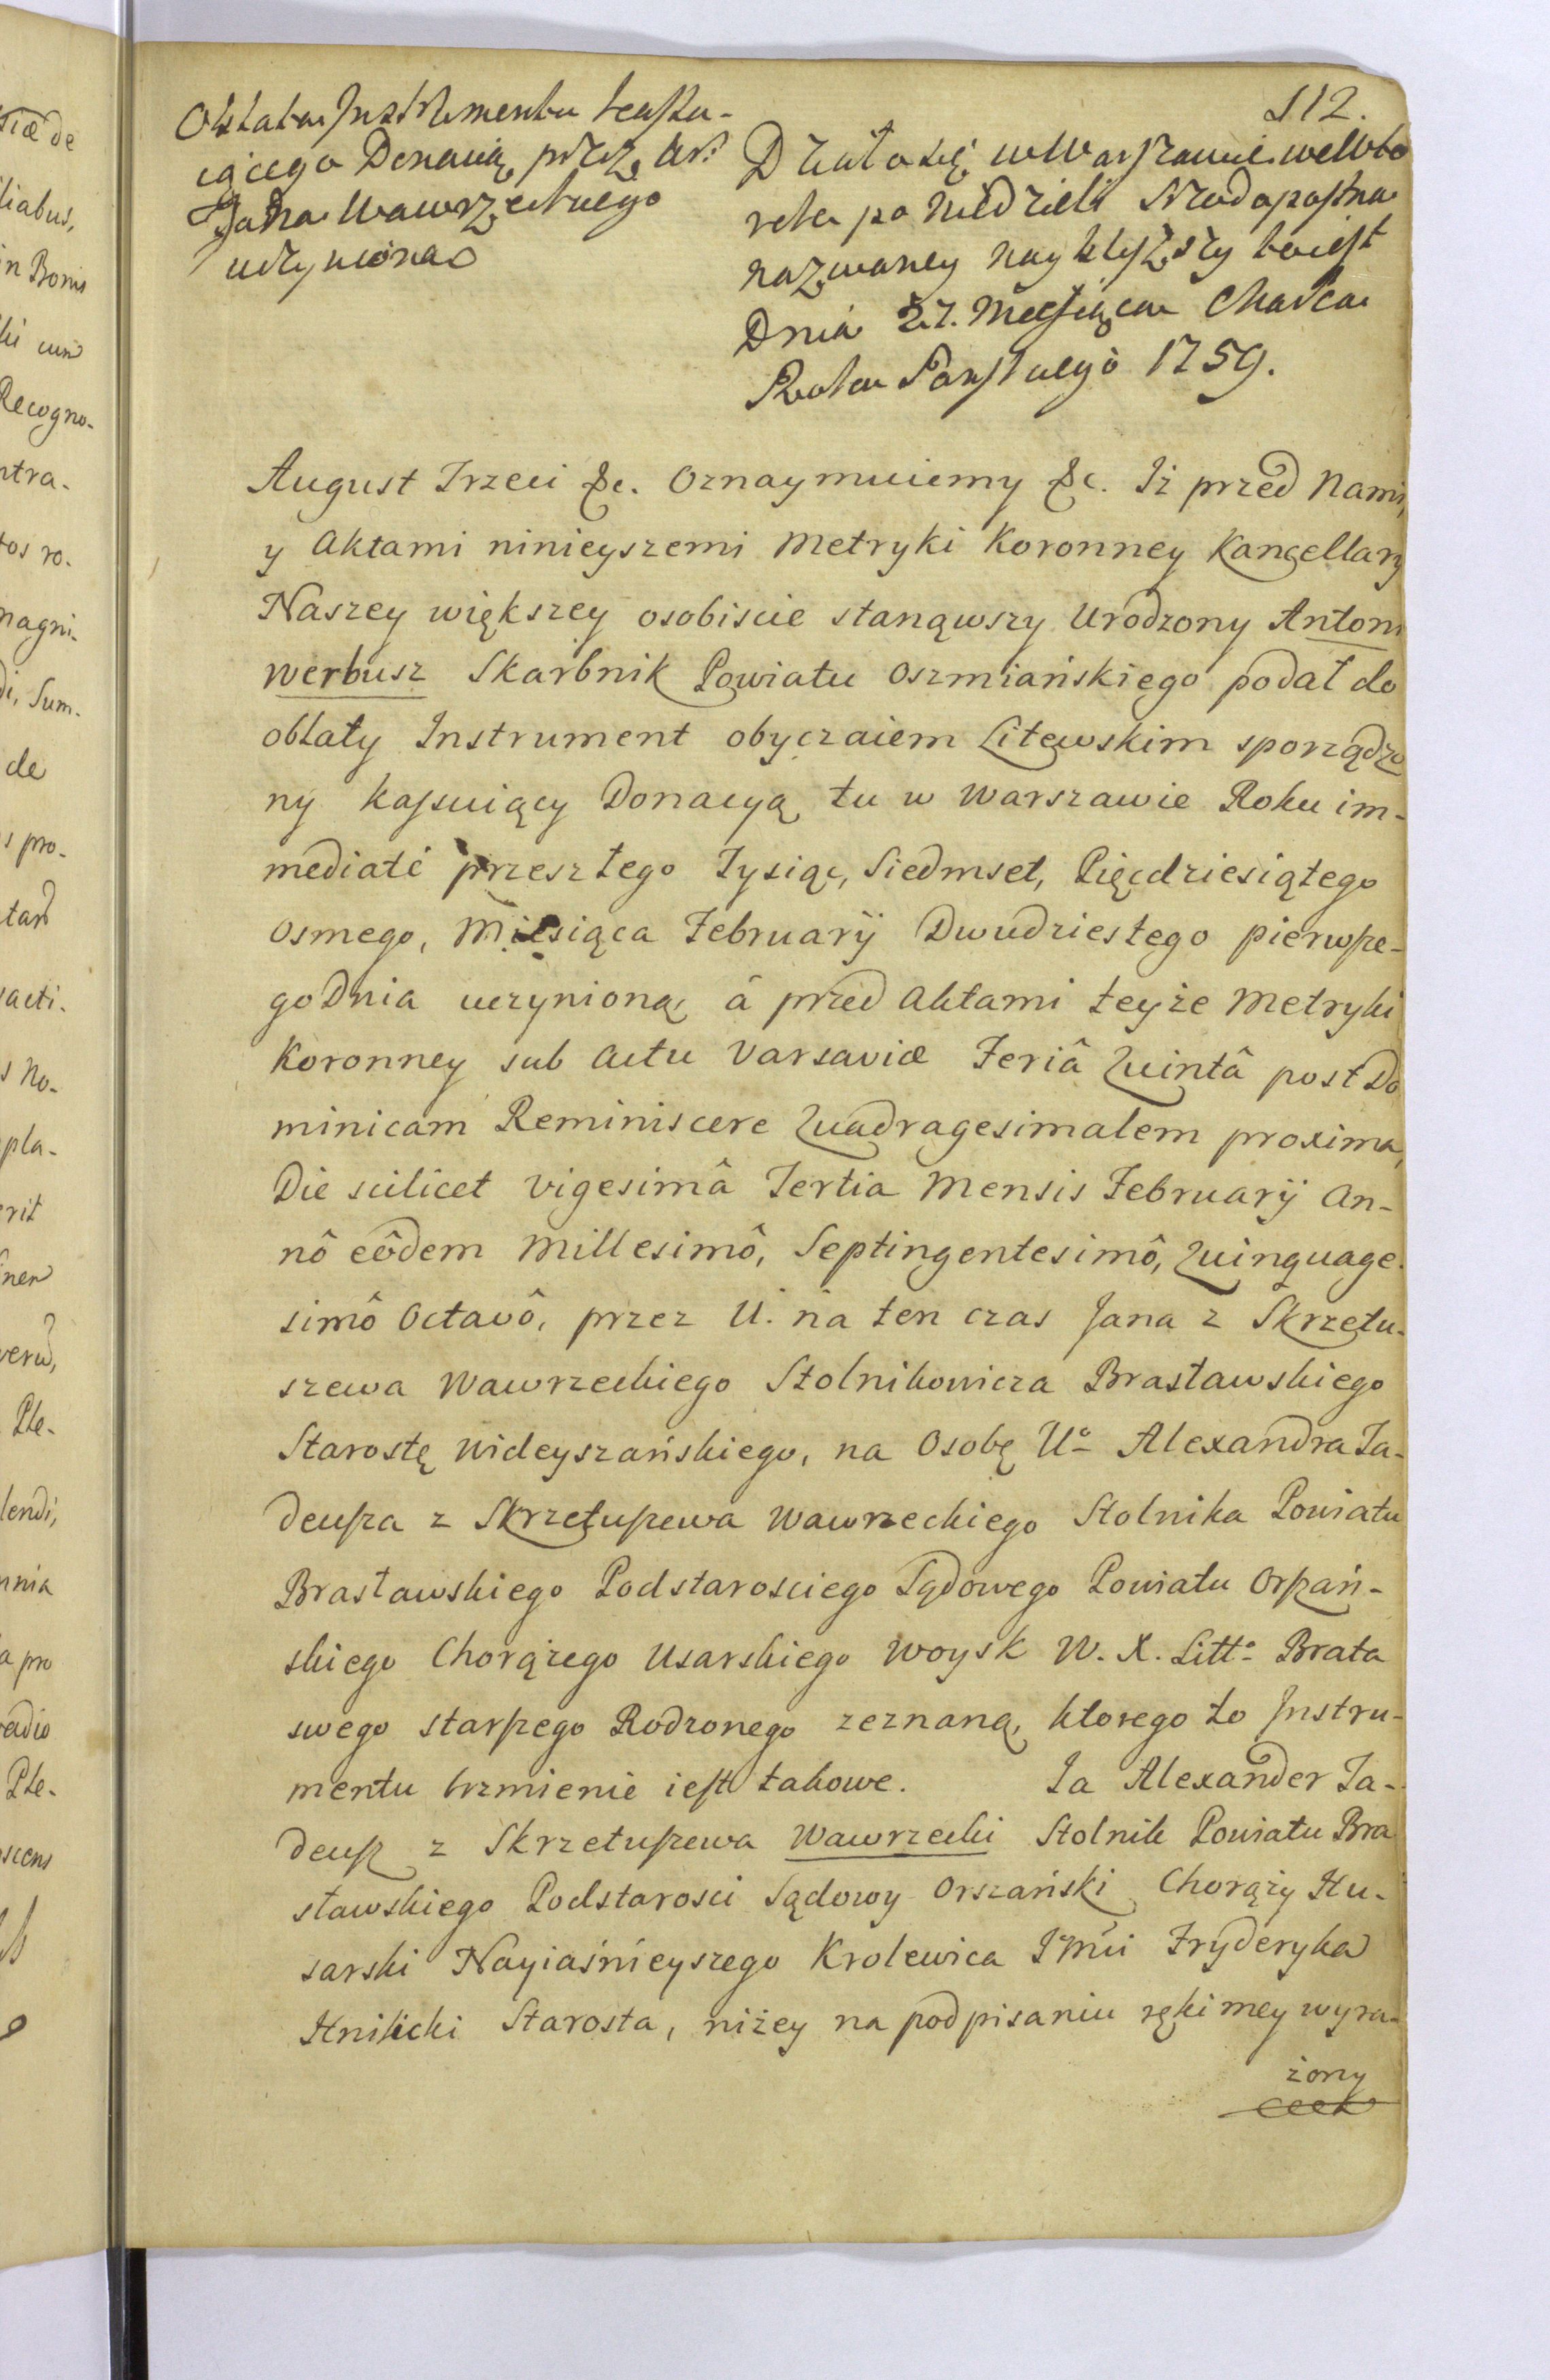 112.
Oblata Instrumentu kassu-
iącego Donacią przez Ur:
Jana Wawrzeckiego
uczynioną
Działo się w Warszawie we Wto
rek po Niedzieli Srzodopostna
nazwaney naybliższy to iest
Dnia 27. Miesiąca Marca
Roku Pańskiego 1759.
August Trzeci &c. Oznaymuiemy &c. Iż przed Nami,
y Aktami ninieyszemi Metryki Koronney Kancellary
Naszey większey osobiscie stanąwszy Urodzony Antoni
Werbusz Skarbnik Powiatu Oszmiańskiego podał do
oblaty Instrument obyczaiem Litewskim sporządzo
ny kassuiący Donacyą tu w Warszawie Roku im-
mediatè przeszłego Tysiąc, Siedmset, Pięcdziesiątego
Osmego, Miesiąca Februarÿ Dwudziestego pierwsze-
go Dnia uczynioną, á przed Aktami teyże Metryki
Koronney sub Actu Varsaviæ Feriâ Quintâ post Do
minicam Reminiscere Quadragesimalem proxima,
Die scilicet vigesimâ Tertia Mensis Februarÿ An-
nô eôdem Millesimô, Septingentesimô, Quinquage-
simô Octavô, przez U. na ten czas Jana z Skrzetu-
szewa Wawrzeckiego Stolnikowicza Brasławskiego
Starostę Wideyszańskiego, na Osobę U° Alexandra Ta-
deusza z Skrzetuszewa Wawrzeckiego Stolnika Powiatu
Brasławskiego Podstarosciego Sądowego Powiatu Orszań-
skiego Chorążego Usarskiego Woysk W. X. Litt° Brata
swego starszego Rodzonego zeznaną, ktorego to Instru-
mentu brzmienie iest takowe. Ja Alexander Ta-
deusz z Skrzetuszewa Wawrzecki Stolnik Powiatu Bra
sławskiego Podstarosci Sądowy Orszański Chorąży Hu-
sarski Nayiaśnieyszego Krolewica Jmći Fryderyka
Starosta, niżey na podpisaniu ręki mey wyra-
żony